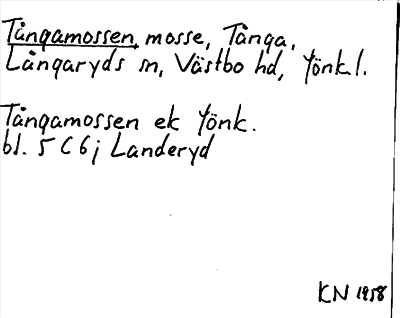 Tångamossen, mosse, Tånga,
Långaryds sn, Västbo hd, Jönk.l.
Tångamossen ek Jönk.
bl. 5 C 6 j Landeryd
KN 1958